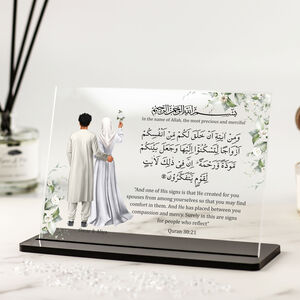 بِسْمِ اللَّهِ الرَّحْمَٰنِ الرَّحِيمِ
In the name of Allah, the most precious and merciful
وَمِنْ آيَتِهِ أَنْ خَلَقَ لَكُمْ مِنْ أَنْفُسِكُمْ
أَزْوَاجًا لِتَسْكُنُوا إِلَيْهَا وَجَعَلَ بَيْنَكُمْ
مَوَدَّةً وَرَحْمَةً إِنَّ فِي ذَلِكَ لَآيَتٍ
لِقَوْمٍ يَتَفَكَّرُونَ
"And one of His signs is that He created for you
spouses from among yourselves so that you may find
comfort in them. And He has placed between you
compassion and mercy. Surely in this are signs
for people who reflect"
Quran 30:21